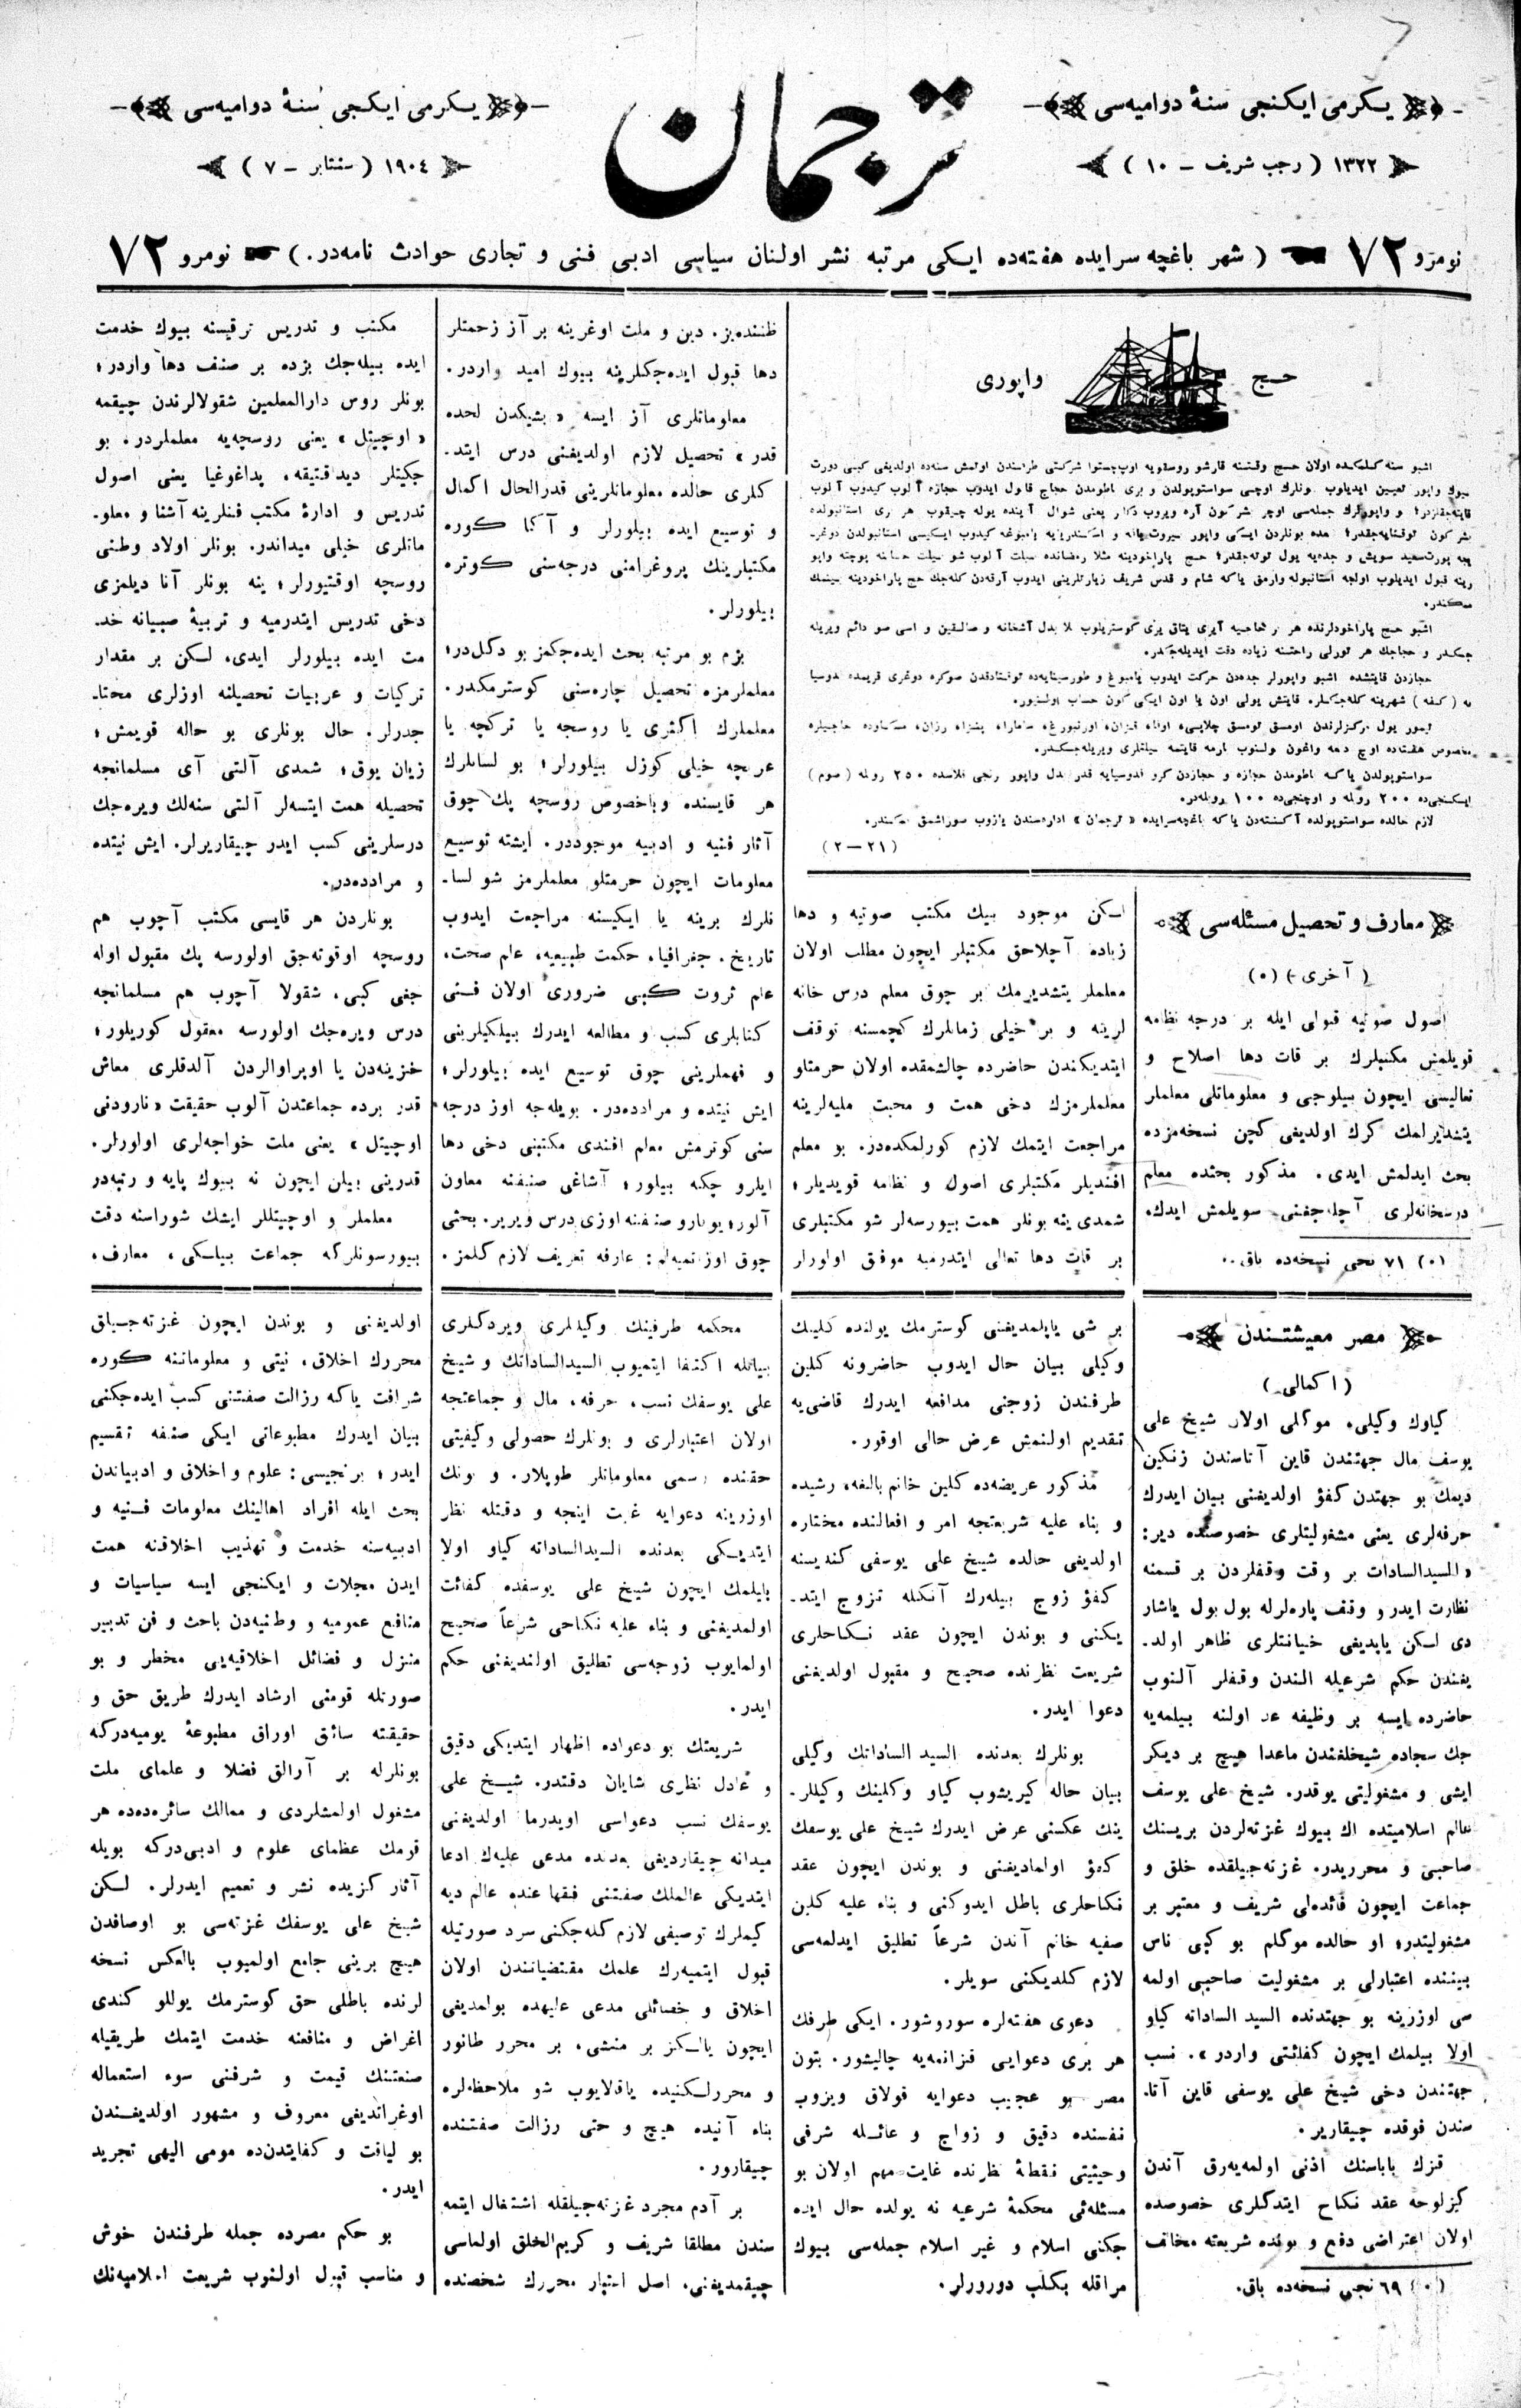 ترجمان
يكرمى ايكنجى سنهٔ دواميه‌سى
١٣٢٢ ( رجب شريف – ١٠ )
يكرمى ايكنجى سنهٔ دواميه‌سى
١٩٠٤ ( سنتابر – ٧ )
نومرو ٧٢ ( شهر باغچه سرايده هفته‌ده ايكى مرتبه نشر اولنان سياسى ادبى فنى و تجارى حوادث نامه‌در. ) نومرو ٧٢
حج واپورى
لازم حالده سواستوپولده آكنته‌دن ياكه باغچه‌سرايده « ترجمان » اداره‌سندن يازوب صوراشمق ممكندر.
( ٢١ — ٢ )
معارف و تحصيل مسئله‌سى
( آخرى ) (٥)
اصول صوتيه قبولى ايله بر درجه نظامه
قويلمش مكتبلرك بر قات دها اصلاح و
تعاليسى ايچون بيلوجى و معلوماتلى معلملر
يتشديرلمك كرك اولديغى كچن نسخه‌مزده
بحث ايدلمش ايدى. مذكور بحثده معلم
درسخانه‌لرى آچله‌جغنى سويلمش ايدك.
(٥) ٧١ نجى نسخه‌ده باق..
لكن موجود بيك مكتب صوتيه و دها
زياده آچلاجق مكتبلر ايچون مطلب اولان
معلملر يتشديرمك بر چوق معلم درس خانه
لرينه و بر خيلى زمانلرك كچمسنه توقف
ايتديكندن حاضرده چالشمقده اولان حرمتلو
معلملرمزك دخى همت و محبت مليه‌لرينه
مراجعت ايتمك لازم كورلمكده‌در. بو معلم
افنديلر مكتبلرى اصول و نظامه قويديلر؛
شمدى ينه بونلر همت بيورسه‌لر شو مكتبلرى
بر قات دها تعالى ايتدرميه موفق اولورلر
ظننده‌يز. دين و ملت اوغرينه بر آز زحمتلر
دها قبول ايده‌جكلرينه بيوك اميد واردر.
معلوماتلرى آز ايسه « بشيكدن لحده
قدر » تحصيل لازم اولديغنى درس ايتد-
كلرى حالده معلوماتلرينى قدرالحال اكمال
و توسيع ايده بيلورلر و آكا كوره
مكتبلرينك پروغرامنى درجه‌سنى كوتره
بيلورلر.
بزم بو مرتبه بحث ايده‌جكمز بو دكل‌در؛
معلملرمزه تحصيل چاره‌سنى كوسترمكدر.
معلملرك اكثرى يا روسجه يا تركچه يا
عربچه خيلى كوزل بيلورلر؛ بو لسانلرك
هر قايسنده و باخصوص روسچه پك چوق
آثار فنيه و ادبيه موجوددر. ايشته توسيع
معلومات ايچون حرمتلو معلملرمز شو لسا-
نلرك برينه يا ايكيسنه مراجعت ايدوب
تاريخ، جغرافيا، حكمت طبيعيه، علم صحت،
علم ثروت كبى ضرورى اولان فنى
كتابلرى كسب و مطالعه ايدرك بيلكيلرينى
و فهملرينى چوق توسيع ايده بيلورلر؛
ايش نيتده و مرادده‌در. بويله‌جه اوز درجه
سنى كوترمش معلم افندى مكتبنى دخى دها
ايلرو چكه بيلور؛ آشاغى صنفنه معاون
آلور؛ يوقارو صنفنه اوزى درس ويرير. بحثى
چوق اوزاتميه‌لم: عارفه تعريف لازم كلمز.
مكتب و تدريس ترقيسنه بيوك خدمت
ايده بيله‌جك بزده بر صنف دها واردر؛
بونلر روس دارالمعلمين شقولالرندن چيقمه
« اوچيتل » يعنى روسچه‌يه معلملردر. بو
جكيتلر ديداقتيقه، پداغوغيا يعنى اصول
تدريس و ادارهٔ مكتب فنلرينه آشنا و معلو-
ماتلرى خيلى ميداندر. بونلر اولاد وطنى
روسچه اوقتيورلر؛ ينه بونلر آنا ديلمزى
دخى تدريس ايتدرميه و تربيهٔ صبيانه خد-
مت ايده بيلورلر ايدى. لكن بر مقدار
تركيات و عربيات تحصيلنه اوزلرى محتا-
جدرلر. حال بونلرى بو حاله قويمش؛
زيان يوق؛ شمدى آلتى آى مسلمانجه
تحصيله همت ايتسه‌لر آلتى سنه‌لك ويره‌جك
درسلرينى كسب ايدر چيقاريرلر. ايش نيتده
و مرادده‌در.
بونلردن هر قايسى مكتب آچوب هم
روسچه اوقوته‌جق اولورسه پك مقبول اوله
جغى كبى، شقولا آچوب هم مسلمانجه
درس ويره‌جك اولورسه معقول كوريلور؛
خزينه‌دن يا اوپراوالردن آلدقلرى معاش
قدر برده جماعتدن آلوب حقيقت « نارودنى
اوچيتل » يعنى ملت خواجه‌لرى اولورلر.
قدرينى بيلن ايچون نه بيوك پايه و رتبه‌در
معلملر و اوچيتللر ايشك شوراسنه دقت
بيورسونلركه جماعت بيلكى، معارف،
مصر معيشتندن
( اكمالى )
كياوك وكيلى، موكلى اولان شيخ على
يوسف مال جهتندن قاين آتاسندن زنكين
ديمك بو جهتدن كفؤ اولديغنى بيان ايدرك
حرفه‌لرى يعنى مشغوليتلرى خصوصنده دير:
« السيدالسادات بر وقت وقفلردن بر قسمنه
نظارت ايدر و وقف پاره‌لرله بول بول ياشار
دى لكن يابديغى خيانتلرى ظاهر اولد-
يغندن حكم شرعيله الندن وقفلر آلنوب
حاضرده ايسه بر وظيفه عد اولنه بيلمه‌يه
جك سجاده شيخلغندن ماعدا هيچ بر ديكر
ايشى و مشغوليتى يوقدر. شيخ على يوسف
عالم اسلاميتده اك بيوك غزته‌لردن بريسنك
صاحبى و محرريدر. غزته‌جيلقده خلق و
جماعت ايچون فائده‌لى شريف و معتبر بر
مشغوليتدر؛ او حالده موكلم بو كبى ناس
بيننده اعتبارلى بر مشغوليت صاحبى اولمه
سى اوزرينه بو جهتدنده السيد الساداته كياو
اولا بيلمك ايچون كفائتى واردر ». نسب
جهتندن دخى شيخ على يوسفى قاين آتا-
سندن فوقده چيقارير.
قزك باباسنك اذنى اولمه‌يه‌رق آندن
كيزلوجه عقد نكاح ايتدكلرى خصوصده
اولان اعتراضى دفع و بونده شريعته مخالف
(٥) ٦٩ نجى نسخه‌ده باق.
بر شى ياپلمديغنى كوسترمك يولنده كلينك
وكيلى بيان حال ايدوب حاضرونه كلين
طرفندن زوجنى مدافعه ايدرك قاضى‌يه
تقديم اولنمش عرض حالى اوقور.
مذكور عريضه‌ده كلين خانم بالغه، رشيده
و بناء عليه شريعتجه امر و افعالنده مختاره
اولديغى حالده شيخ على يوسفى كنديسنه
كفؤ زوج بيله‌رك آنكله تزوج ايتد-
يكنى و بوندن ايچون عقد نكاحلرى
شريعت نظرنده صحيح و مقبول اولديغنى
دعوا ايدر.
بونلرك بعدنده السيد الساداتك وكيلى
بيان حاله كيريشوب كياو و كلينك وكيللر-
ينك عكسنى عرض ايدرك شيخ على يوسفك
كفؤ اولماديغنى و بوندن ايچون عقد
نكاحلرى باطل ايدوكنى و بناء عليه كلين
صفيه خانم آندن شرعاً تطليق ايدلمه‌سى
لازم كلديكنى سويلر.
دعوى هفته‌لره سوروشور. ايكى طرفك
هر برى دعوايى قزانمه‌يه چاليشور. بتون
مصر بو عجيب دعوايه قولاق ويروب
نفسنده دقيق و زواج و عائله شرفى
وحيثيتى نقطهٔ نظرنده غايت مهم اولان بو
مسئله‌ئى محكمهٔ شرعيه نه يولده حال ايده
جكنى اسلام و غير اسلام جمله‌سى بيوك
مراقله بكلب دورورلر.
محكمه طرفينك وكيللرى ويردكلرى
بياتله اكتفا ايتميوب السيدالساداتك و شيخ
على يوسفك نسب، حرفه، مال و جماعتجه
اولان اعتبارلرى و بونلرك حصولى وكيفيتى
حقنده رسمى معلوماتلر طوپلار. و بونك
اوزرينه دعوايه غايت اينجه و دقتله نظر
ايتديكى بعدنده السيدالساداته كياو اولا
بايلمك ايچون شيخ على يوسفده كفائت
اولمديغنى و بناء عليه نكاحى شرعاً صحيح
اولمايوب زوجه‌سى تطليق اولنديغنى حكم
ايدر.
شريعتك بو دعواده اظهار ايتديكى دقيق
و عادل نظرى شايان دقتدر. شيخ على
يوسفك نسب دعواسى اويدرما اولديغنى
ميدانه چيقارديغى بعدنده مدعى عليه‌ك ادعا
ايتديكى عالملك صفتنى فقها عنده عالم ديه
كيملرك توصيفى لازم كله‌جكنى سرد صورتيله
قبول ايتميه‌رك علمك مقتضياتندن اولان
اخلاق و خصائلى مدعى عليهده بولمديغى
ايچون يالكز بر منشى، بر محرر طانور
و محررلكنيده ياقالايوب شو ملاحظه‌لره
بناء آنيده هيچ و حتى رزالت صفتنده
چيقارور.
بر آدم مجرد غزته‌جيلقله اشتغال ايتمه
سندن مطلقا شريف و كريم‌الخلق اولماسى
چيقمديغنى، اصل اعتبار محررك شخصنده
اولديغنى و بوندن ايچون غزته‌جيلق
محررك اخلاق، نيتى و معلوماتنه كوره
شرافت ياكه رزالت صفتنى كسب ايده‌جكنى
بيان ايدرك مطبوعاتى ايكى صنفه تقسيم
ايدر؛ برنجيسى: علوم و اخلاق و ادبياندن
بحث ايله افراد اهالينك معلومات فنيه و
ادبيه‌سنه خدمت و تهذيب اخلاقنه همت
ايدن مجلات و ايكنجى ايسه سياسيات و
منافع عموميه و وطنيه‌دن باحث و فن تدبير
منزل و فضائل اخلاقيه‌يى مخطر و بو
صورتله قومنى ارشاد ايدرك طريق حق و
حقيقته سائق اوراق مطبوعهٔ يوميه‌دركه
بونلرله بر آرالق فضلا و علماى ملت
مشغول اولمشلردى و ممالك سائره‌ده‌ده هر
قومك عظماى علوم و ادبى‌دركه بويله
آثار كزيده نشر و تعميم ايدرلر. لكن
شيخ على يوسفك غزته‌سى بو اوصافدن
هيچ برينى جامع اولميوب بالعكس نسخه
لرنده باطلى حق كوسترمك يوللو كندى
اغراض و منافعنه خدمت ايتمك طريقيله
صنعتنك قيمت و شرفنى سوء استعماله
اوغراتديغى معروف و مشهور اولديغندن
بو لياقت و كفايتدن‌ده مومى اليهى تجريد
ايدر.
بو حكم مصرده جمله طرفندن خوش
و مناسب قبول اولنوب شريعت اسلاميه‌نك